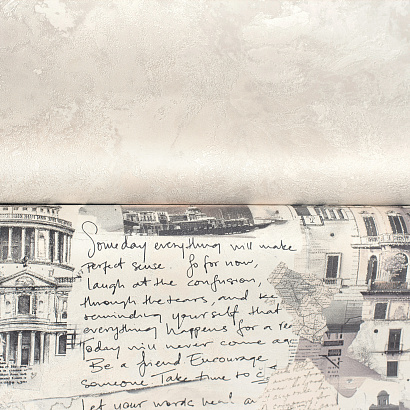 Someday everything will make
perfect sense. So for now,
laugh at the confusion,
through the tears, and
reminding yourself that
everything happens for a
Today will never come
Be a friend Encourage
someone Take time to
Let your words